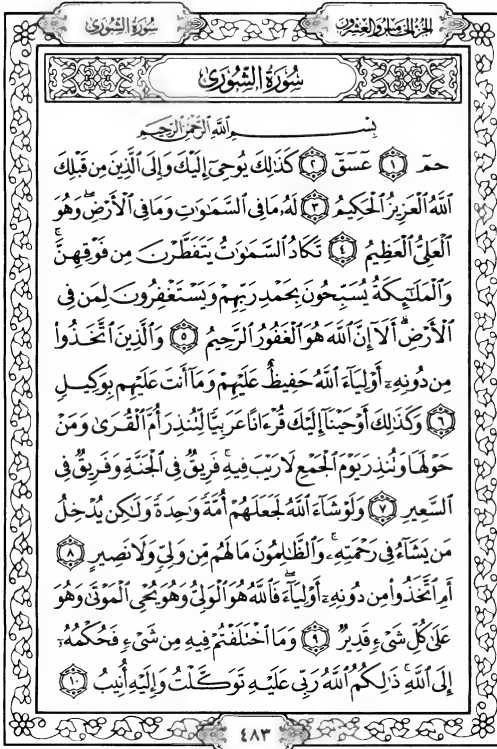 سُورَةُ الشُّورَىٰ
الجُزْءُ الخَامِسُ وَالعِشْرُونَ
سُورَةُ الشُّورَىٰ
بِسْمِ اللَّهِ الرَّحْمَٰنِ الرَّحِيمِ
حمٓ ﴿١﴾ عٓسٓقٓ ﴿٢﴾ كَذَٰلِكَ يُوحِىٓ إِلَيْكَ وَإِلَى ٱلَّذِينَ مِن قَبْلِكَ
ٱللَّهُ ٱلْعَزِيزُ ٱلْحَكِيمُ ﴿٣﴾ لَهُۥ مَا فِى ٱلسَّمَٰوَٰتِ وَمَا فِى ٱلْأَرْضِ ۖ وَهُوَ
ٱلْعَلِىُّ ٱلْعَظِيمُ ﴿٤﴾ تَكَادُ ٱلسَّمَٰوَٰتُ يَتَفَطَّرْنَ مِن فَوْقِهِنَّ ۚ
وَٱلْمَلَٰٓئِكَةُ يُسَبِّحُونَ بِحَمْدِ رَبِّهِمْ وَيَسْتَغْفِرُونَ لِمَن فِى
ٱلْأَرْضِ ۗ أَلَآ إِنَّ ٱللَّهَ هُوَ ٱلْغَفُورُ ٱلرَّحِيمُ ﴿٥﴾ وَٱلَّذِينَ ٱتَّخَذُوا۟
مِن دُونِهِۦٓ أَوْلِيَآءَ ٱللَّهُ حَفِيظٌ عَلَيْهِمْ وَمَآ أَنتَ عَلَيْهِم بِوَكِيلٍ
﴿٦﴾ وَكَذَٰلِكَ أَوْحَيْنَآ إِلَيْكَ قُرْءَانًا عَرَبِيًّا لِّتُنذِرَ أُمَّ ٱلْقُرَىٰ وَمَنْ
حَوْلَهَا وَتُنذِرَ يَوْمَ ٱلْجَمْعِ لَا رَيْبَ فِيهِ ۚ فَرِيقٌ فِى ٱلْجَنَّةِ وَفَرِيقٌ فِى
ٱلسَّعِيرِ ﴿٧﴾ وَلَوْ شَآءَ ٱللَّهُ لَجَعَلَهُمْ أُمَّةً وَٰحِدَةً وَلَٰكِن يُدْخِلُ
مَن يَشَآءُ فِى رَحْمَتِهِۦ ۚ وَٱلظَّٰلِمُونَ مَا لَهُم مِّن وَلِىٍّ وَلَا نَصِيرٍ ﴿٨﴾
أَمِ ٱتَّخَذُوا۟ مِن دُونِهِۦٓ أَوْلِيَآءَ ۖ فَٱللَّهُ هُوَ ٱلْوَلِىُّ وَهُوَ يُحْىِ ٱلْمَوْتَىٰ وَهُوَ
عَلَىٰ كُلِّ شَىْءٍ قَدِيرٌ ﴿٩﴾ وَمَا ٱخْتَلَفْتُمْ فِيهِ مِن شَىْءٍ فَحُكْمُهُۥٓ
إِلَى ٱللَّهِ ۚ ذَٰلِكُمُ ٱللَّهُ رَبِّى عَلَيْهِ تَوَكَّلْتُ وَإِلَيْهِ أُنِيبُ ﴿١٠﴾
٤٨٣